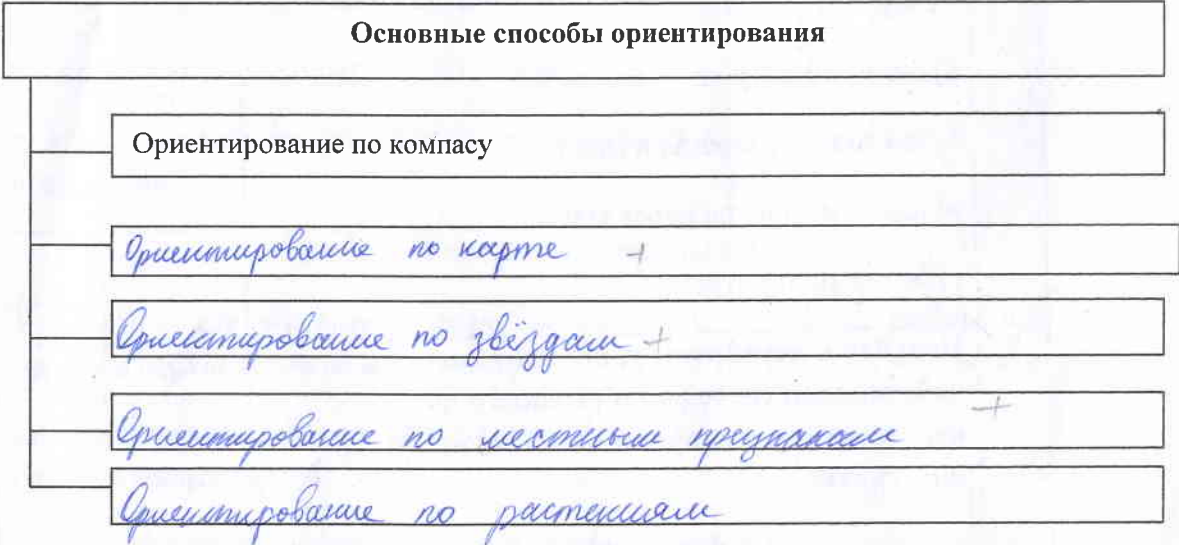 Основные способы ориентирования
Ориентирование по компасу
Ориентирование по карте +
Ориентирование по звёздам +
Ориентирование по местным признакам +
Ориентирование по растениям